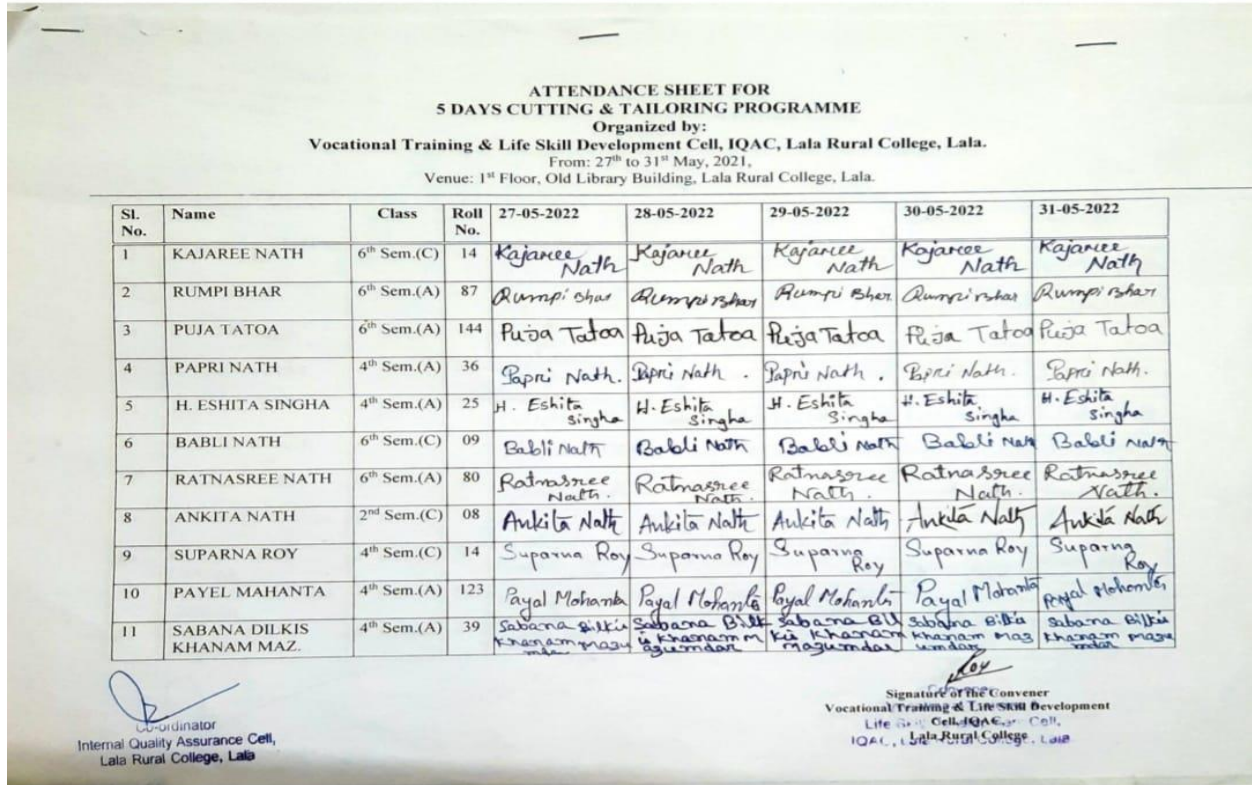 ATTENDANCE SHEET FOR
5 DAYS CUTTING & TAILORING PROGRAMME
Organized by:
Vocational Training & Life Skill Development Cell, IQAC, Lala Rural College, Lala.
From: 27th to 31st May, 2021,
Venue: 1st Floor, Old Library Building, Lala Rural College, Lala.
Sl. No. Name Class Roll No. 27-05-2022 28-05-2022 29-05-2022 30-05-2022 31-05-2022
1 KAJAREE NATH 6th Sem.(C) 14 Kajaree Nath Kajaree Nath Kajaree Nath Kajaree Nath Kajaree Nath
2 RUMPI BHAR 6th Sem.(A) 87 Rumpi Bhar Rumpi Bhar Rumpi Bhar Rumpi Bhar Rumpi Bhar
3 PUJA TATOA 6th Sem.(A) 144 Puja Tatoa Puja Tatoa Puja Tatoa Puja Tatoa Puja Tatoa
4 PAPRI NATH 4th Sem.(A) 36 Papri Nath. Papri Nath . Papri Nath . Papri Nath. Papri Nath.
5 H. ESHITA SINGHA 4th Sem.(A) 25 H. Eshita Singha H. Eshita Singha H. Eshita Singha H. Eshita Singha H. Eshita Singha
6 BABLI NATH 6th Sem.(C) 09 Babli Nath Babli Nath Babli Nath Babli Nath Babli Nath
7 RATNASREE NATH 6th Sem.(A) 80 Ratnasree Nath. Ratnasree Nath. Ratnasree Nath. Ratnasree Nath. Ratnasree Nath.
8 ANKITA NATH 2nd Sem.(C) 08 Ankita Nath Ankita Nath Ankita Nath Ankita Nath Ankita Nath
9 SUPARNA ROY 4th Sem.(C) 14 Suparna Roy Suparna Roy Suparna Roy Suparna Roy Suparna Roy
10 PAYEL MAHANTA 4th Sem.(A) 123 Payal Mohanta Payal Mohanta Payal Mohanta Payal Mohanta Payal Mohanta
11 SABANA DILKIS KHANAM MAZ. 4th Sem.(A) 39 Sabana Bilkis Khanam Mazumdar Sabana Bilkis Khanam Mazumdar Sabana Bilkis Khanam Mazumdar Sabana Bilkis Khanam Mazumdar Sabana Bilkis Khanam Mazumdar
Roy
Co-ordinator
Internal Quality Assurance Cell,
Lala Rural College, Lala
Signature of the Convener
Vocational Training & Life Skill Development
Cell, IQAC,
Lala Rural College